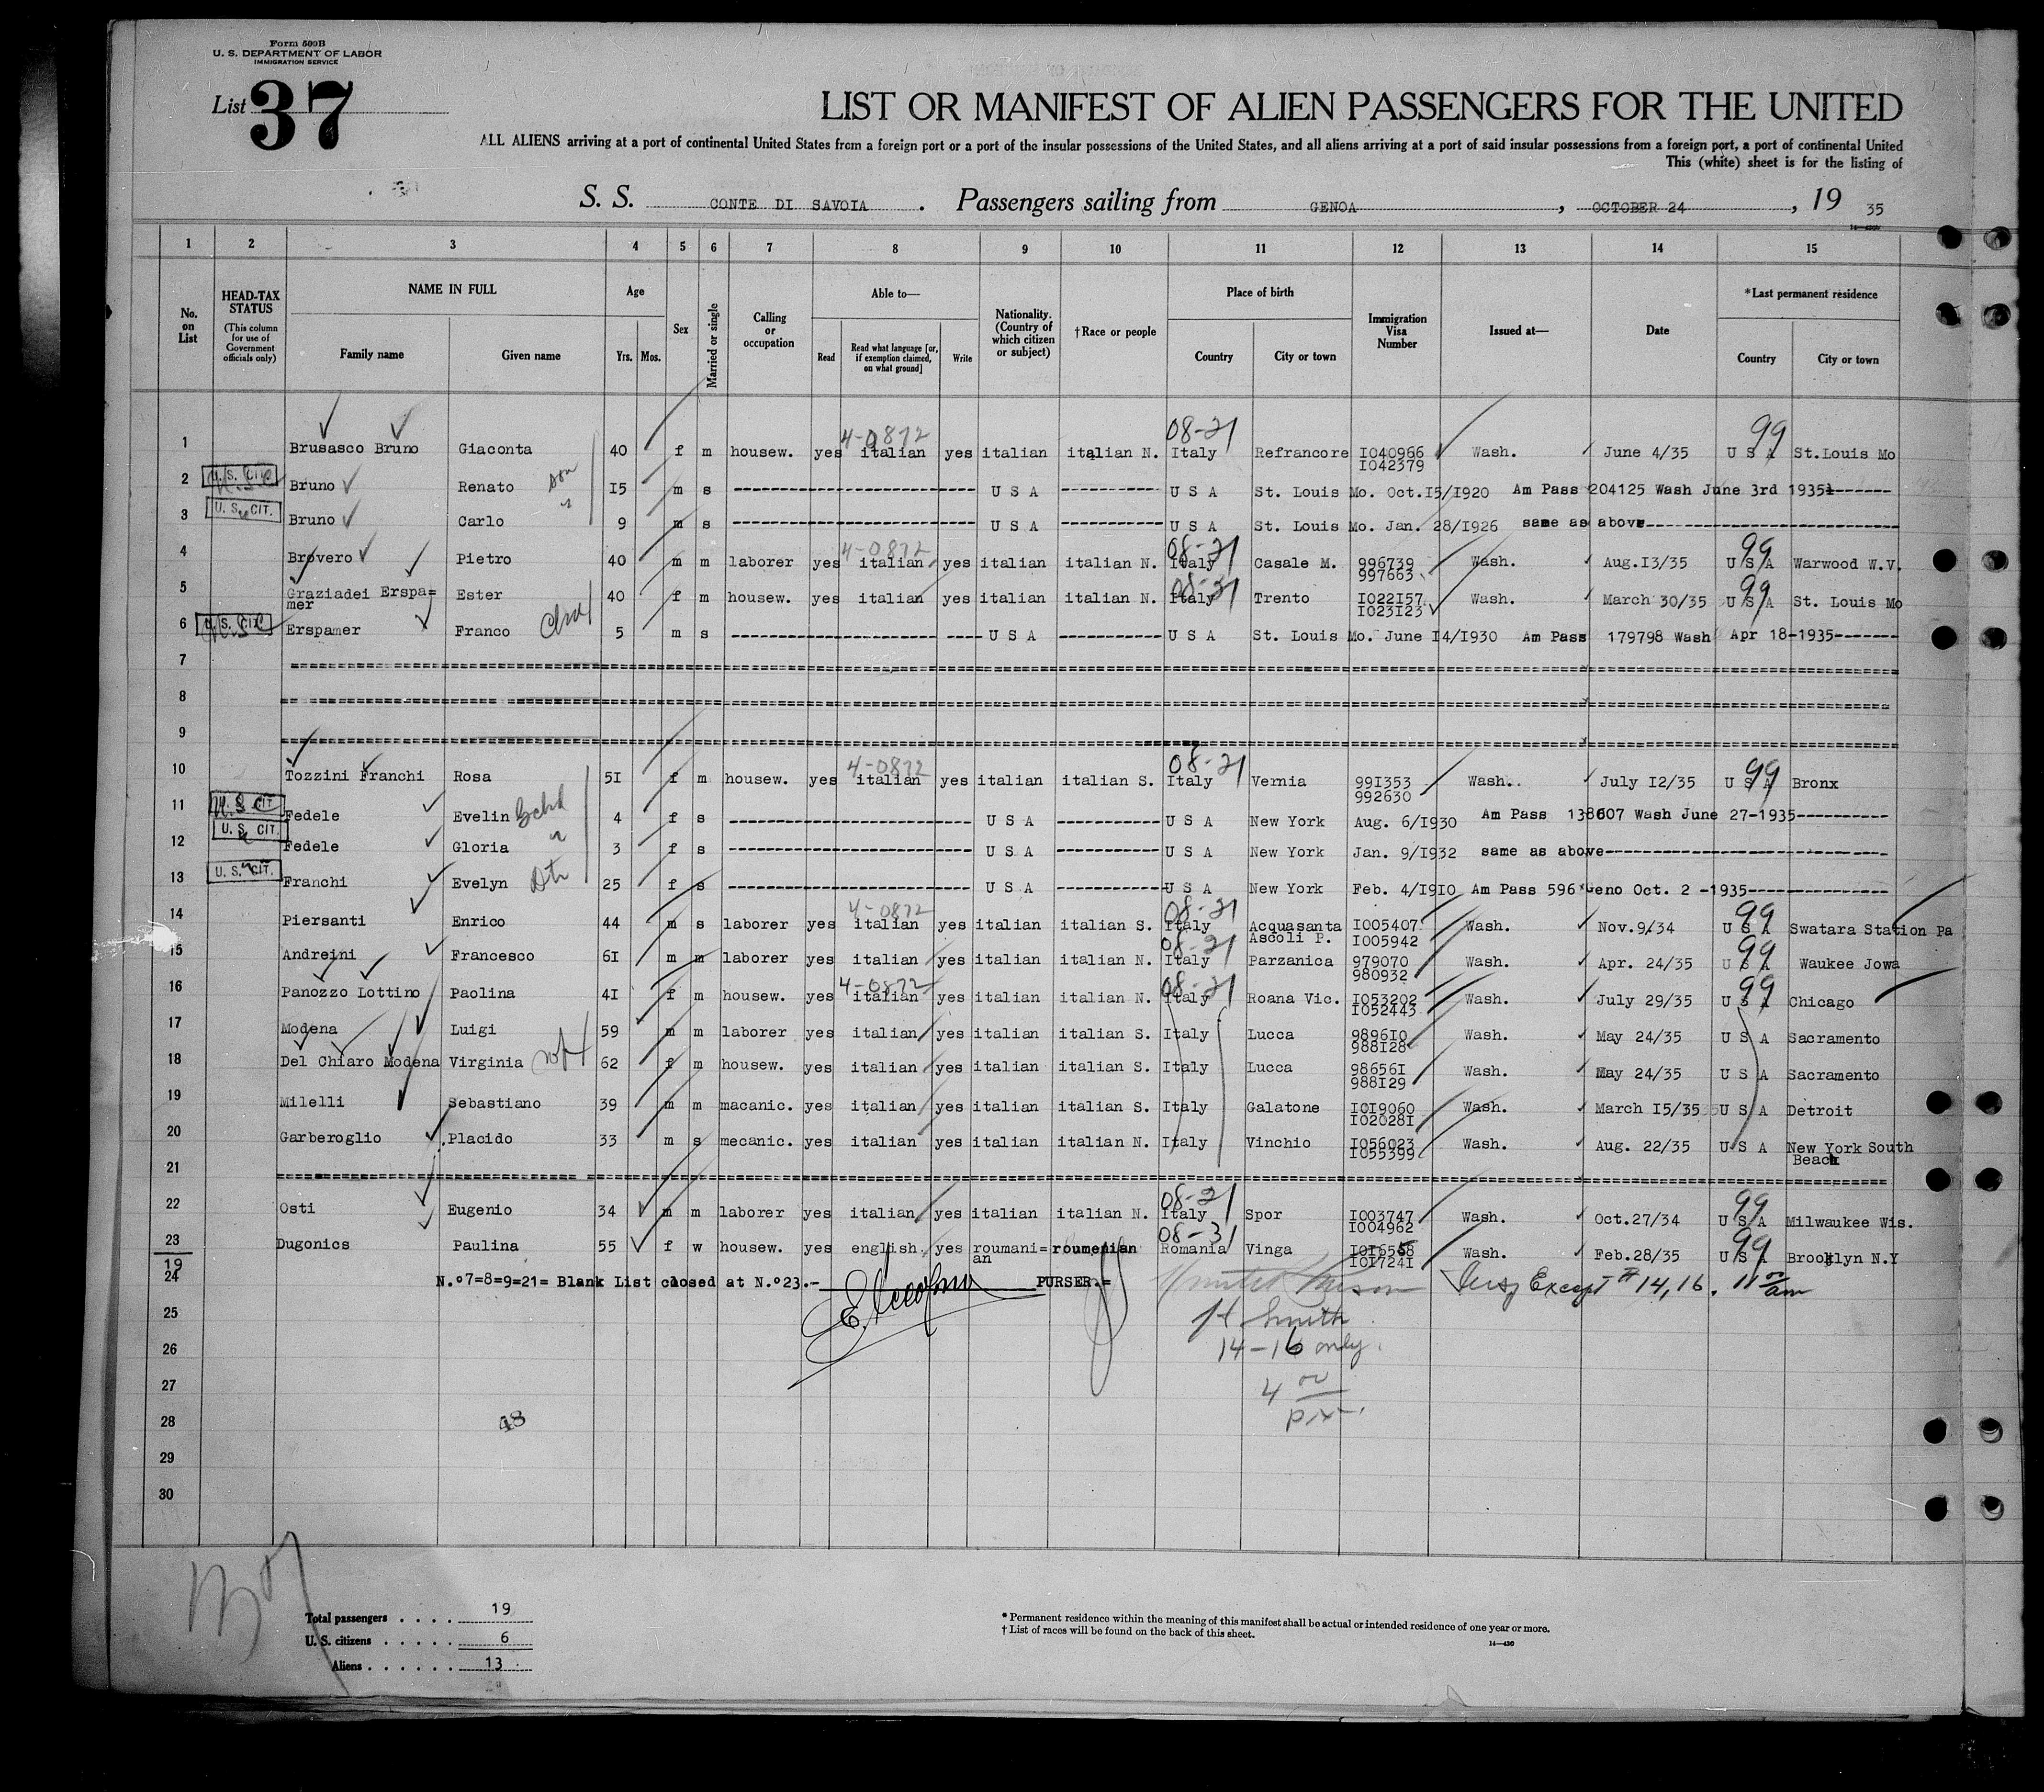 Form 500B
U. S. DEPARTMENT OF LABOR
IMMIGRATION SERVICE
List 37
LIST OR MANIFEST OF ALIEN PASSENGERS FOR THE UNITED
ALL ALIENS arriving at a port of continental United States from a foreign port or a port of the insular possessions of the United States, and all aliens arriving at a port of said insular possessions from a foreign port, a port of continental United
This (white) sheet is for the listing of
S. S. CONTE DI SAVOIA . Passengers sailing from GENOA , OCTOBER 24 , 19 35
1 2 3 4 5 6 7 8 9 10 11 12 13 14 15
No. on List
HEAD-TAX STATUS (This column for use of Government officials only)
NAME IN FULL Family name Given name
Age Yrs. Mos.
Sex
Married or single
Calling or occupation
Able to— Read Read what language [or, if exemption claimed, on what ground] Write
Nationality. (Country of which citizen or subject)
†Race or people
Place of birth Country City or town
Immigration Visa Number
Issued at—
Date
*Last permanent residence Country City or town
4-0872 08-21 99
1 Brusasco Bruno Giaconta 40 f m housew. yes italian yes italian italian N. Italy Refrancore I040966 Wash. June 4/35 U S A St.Louis Mo
I042379
2 U. S. CIT. Bruno Renato son I5 m s U S A U S A St. Louis Mo. Oct.I5/I920 Am Pass 204125 Wash June 3rd 1935
3 U. S. CIT. Bruno Carlo " 9 m s U S A U S A St. Louis Mo. Jan. 28/I926 same as above
4-0872 08-21 99
4 Brovero Pietro 40 m m laborer yes italian yes italian italian N. Italy Casale M. 996739 Wash. Aug.I3/35 U S A Warwood W.V.
997663
08-21 99
5 Graziadei Erspa= Ester 40 f m housew. yes italian yes italian italian N. Italy Trento I022I57 Wash. March 30/35 U S A St. Louis Mo
mer I023I23
6 U. S. CIT. Erspamer Franco 5 m s U S A U S A St. Louis Mo. June I4/I930 Am Pass 179798 Wash Apr 18-1935
7
8
9
4-0872 08-21 99
10 Tozzini Franchi Rosa 5I f m housew. yes italian yes italian italian S. Italy Vernia 99I353 Wash. July I2/35 U S A Bronx
992630
11 U. S. CIT. Fedele Evelin 4 f s U S A U S A New York Aug. 6/I930 Am Pass 138607 Wash June 27-1935
12 U. S. CIT. Fedele Gloria " 3 f s U S A U S A New York Jan. 9/I932 same as above
13 U. S. CIT. Franchi Evelyn Dtr 25 f s U S A U S A New York Feb. 4/I9I0 Am Pass 596 Geno Oct. 2 -1935
4-0872 08-21 99
14 Piersanti Enrico 44 m s laborer yes italian yes italian italian S. Italy Acquasanta I005407 Wash. Nov.9/34 U S A Swatara Station Pa
Ascoli P. I005942
08-21 99
15 Andreini Francesco 6I m m laborer yes italian yes italian italian N. Italy Parzanica 979070 Wash. Apr. 24/35 U S A Waukee Jowa
980932
4-0872 08-21 99
16 Panozzo Lottino Paolina 4I f m housew. yes italian yes italian italian N. Italy Roana Vic. I053202 Wash. July 29/35 U S A Chicago
I052443
17 Modena Luigi 59 m m laborer yes italian yes italian italian S. Italy Lucca 9896I0 Wash. May 24/35 U S A Sacramento
988I28
18 Del Chiaro Modena Virginia wf 62 f m housew. yes italian yes italian italian S. Italy Lucca 98656I Wash. May 24/35 U S A Sacramento
988I29
19 Milelli Sebastiano 39 m m macanic. yes italian yes italian italian S. Italy Galatone I0I9060 Wash. March I5/35 U S A Detroit
I02028I
20 Garberoglio Placido 33 m s mecanic. yes italian yes italian italian N. Italy Vinchio I056023 Wash. Aug. 22/35 U S A New York South
I055399 Beach
21
08-21 99
22 Osti Eugenio 34 m m laborer yes italian yes italian italian N. Italy Spor I003747 Wash. Oct.27/34 U S A Milwaukee Wis.
I004962
08-31 99
23 Dugonics Paulina 55 f w housew. yes english. yes roumani= roumenian Romania Vinga I0I6558 Wash. Feb.28/35 U S A Brooklyn N.Y
an I0I724I
19
24 N.o7=8=9=21= Blank List closed at N.o23.- PURSER.= Except # 14, 16. 11 00 am
25 Smith
26 14-16 only.
27 4
28 48
29
30
Total passengers . . . . 19
U. S. citizens . . . . . 6
Aliens . . . . . . 13
* Permanent residence within the meaning of this manifest shall be actual or intended residence of one year or more.
† List of races will be found on the back of this sheet.
14—430